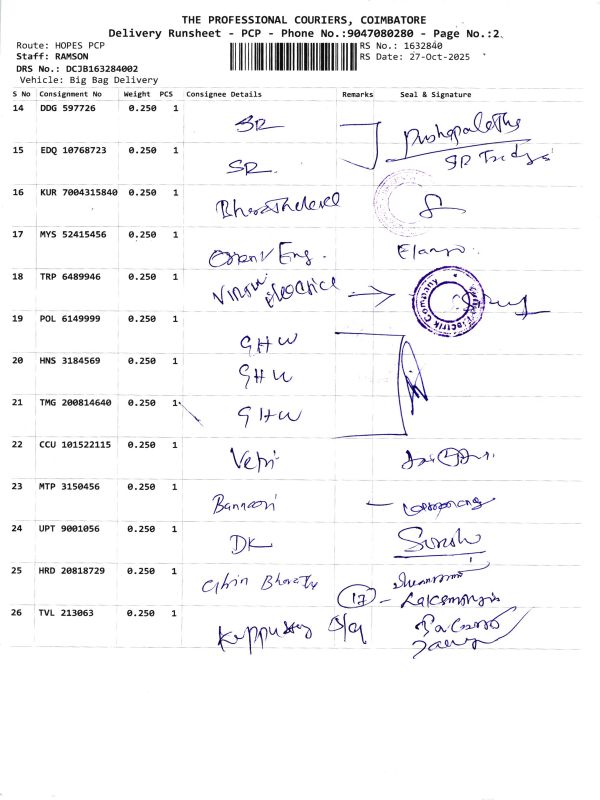 THE PROFESSIONAL COURIERS, COIMBATORE
Delivery Runsheet - PCP - Phone No.:9047080280 - Page No.:2
Route: HOPES PCP
RS No.: 1632840
Staff: RAMSON
RS Date: 27-Oct-2025
DRS No.: DCJB163284002
Vehicle: Big Bag Delivery
S No Consignment No Weight PCS Consignee Details Remarks Seal & Signature
14 DDG 597726 0.250 1
SR
15 EDQ 10768723 0.250 1
SR
16 KUR 7004315840 0.250 1
17 MYS 52415456 0.250 1
Elango
18 TRP 6489946 0.250 1
19 POL 6149999 0.250 1
GHW
20 HNS 3184569 0.250 1
GHW
21 TMG 200814640 0.250 1
GHW
22 CCU 101522115 0.250 1
Vetri
23 MTP 3150456 0.250 1
Bannari
24 UPT 9001056 0.250 1
DK
Suresh
25 HRD 20818729 0.250 1
Bharathy
17
26 TVL 213063 0.250 1